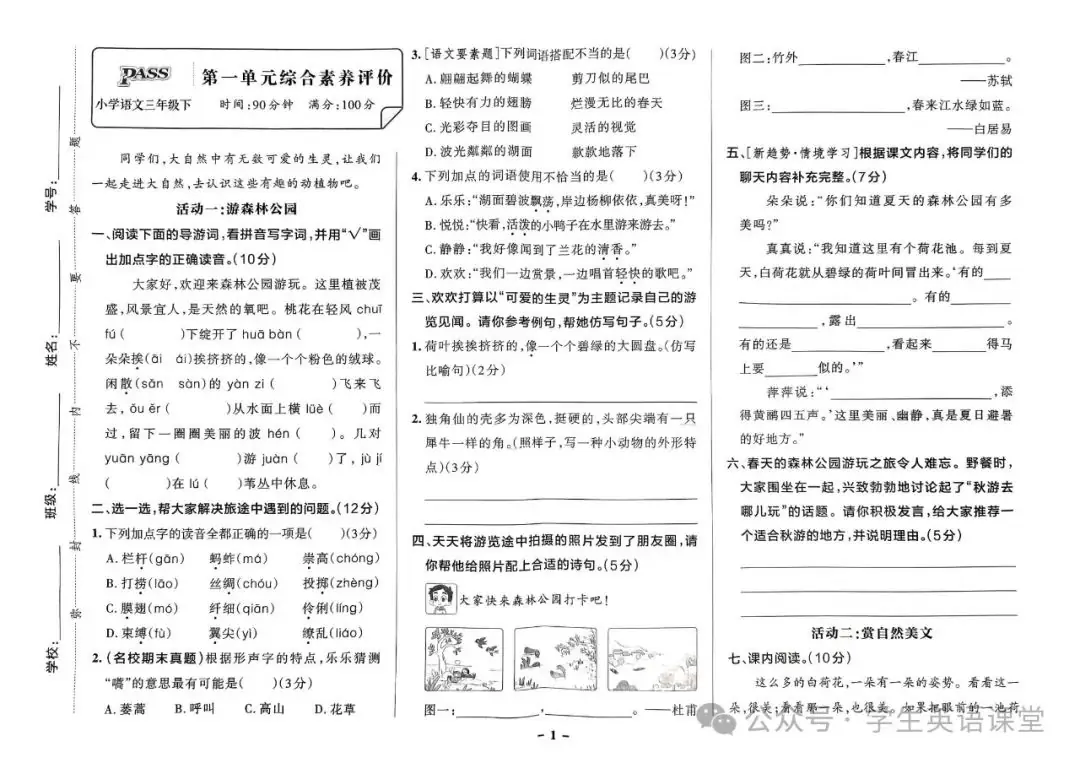 PASS 第一单元综合素养评价
小学语文三年级下 时间:90分钟 满分:100分
学校: 班级: 姓名: 学号:
弥 封 线 内 不 要 答 题
同学们,大自然中有无数可爱的生灵,让我们
一起走进大自然,去认识这些有趣的动植物吧。
活动一:游森林公园
一、阅读下面的导游词,看拼音写字词,并用“√”画
出加点字的正确读音。(10分)
大家好,欢迎来森林公园游玩。这里植被茂
盛,风景宜人,是天然的氧吧。桃花在轻风 chuī
fú ( )下绽开了 huā bàn ( ),一
朵朵挨(āi ái)挨挤挤的,像一个个粉色的绒球。
闲散(sǎn sàn)的 yàn zi ( )飞来飞
去, ǒu ěr ( )从水面上横 lüè ( )而
过,留下一圈圈美丽的波 hén ( )。几对
yuān yāng ( )游 juàn ( )了, jù jí
( )在 lú ( )苇丛中休息。
二、选一选,帮大家解决旅途中遇到的问题。(12分)
1. 下列加点字的读音全都正确的一项是( )(3分)
A. 栏杆(gān) 蚂蚱(má) 崇高(chóng)
B. 打捞(lāo) 丝绸(chóu) 投掷(zhèng)
C. 膜翅(mó) 纤细(qiān) 伶俐(líng)
D. 束缚(fù) 翼尖(yì) 缭乱(liáo)
2. (名校期末真题)根据形声字的特点,乐乐猜测
“嚆”的意思最有可能是( )(3分)
A. 蒌蒿 B. 呼叫 C. 高山 D. 花草
3. [语文要素题]下列词语搭配不当的是( )(3分)
A. 翩翩起舞的蝴蝶 剪刀似的尾巴
B. 轻快有力的翅膀 烂漫无比的春天
C. 光彩夺目的图画 灵活的视觉
D. 波光粼粼的湖面 款款地落下
4. 下列加点的词语使用不恰当的是( )(3分)
A. 乐乐:“湖面碧波飘荡,岸边杨柳依依,真美呀!”
B. 悦悦:“快看,活泼的小鸭子在水里游来游去。”
C. 静静:“我好像闻到了兰花的清香。”
D. 欢欢:“我们一边赏景,一边唱首轻快的歌吧。”
三、欢欢打算以“可爱的生灵”为主题记录自己的游
览见闻。请你参考例句,帮她仿写句子。(5分)
1. 荷叶挨挨挤挤的,像一个个碧绿的大圆盘。(仿写
比喻句)(2分)
2. 独角仙的壳多为深色,挺硬的,头部尖端有一只
犀牛一样的角。(照样子,写一种小动物的外形特
点)(3分)
四、天天将游览途中拍摄的照片发到了朋友圈,请
你帮他给照片配上合适的诗句。(5分)
大家快来森林公园打卡吧!
图一: , 。——杜甫
图二:竹外 ,春江 。
——苏轼
图三: ,春来江水绿如蓝。
——白居易
五、[新趋势·情境学习]根据课文内容,将同学们的
聊天内容补充完整。(7分)
朵朵说:“你们知道夏天的森林公园有多
美吗?”
真真说:“我知道这里有个荷花池。每到夏
天,白荷花就从碧绿的荷叶间冒出来。‘有的
。有的
,露出 。
有的还是 ,看起来 得马
上要 似的。’”
萍萍说:“‘ ,添
得黄鹂四五声。’这里美丽、幽静,真是夏日避暑
的好地方。”
六、春天的森林公园游玩之旅令人难忘。野餐时,
大家围坐在一起,兴致勃勃地讨论起了“秋游去
哪儿玩”的话题。请你积极发言,给大家推荐一
个适合秋游的地方,并说明理由。(5分)
活动二:赏自然美文
七、课内阅读。(10分)
这么多的白荷花,一朵有一朵的姿势。看看这一
朵,很美;看看那一朵,也很美。如果把眼前的一池荷
- 1 -
公众号·学生英语课堂